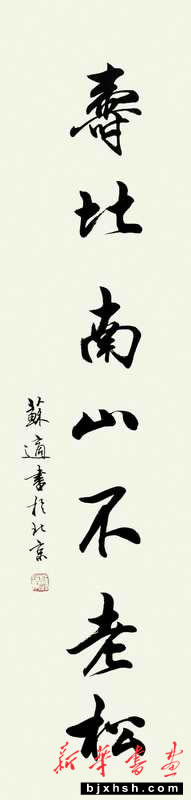 壽比南山不老松
蘇適書於北京
新華書畫
bjxhsh.com